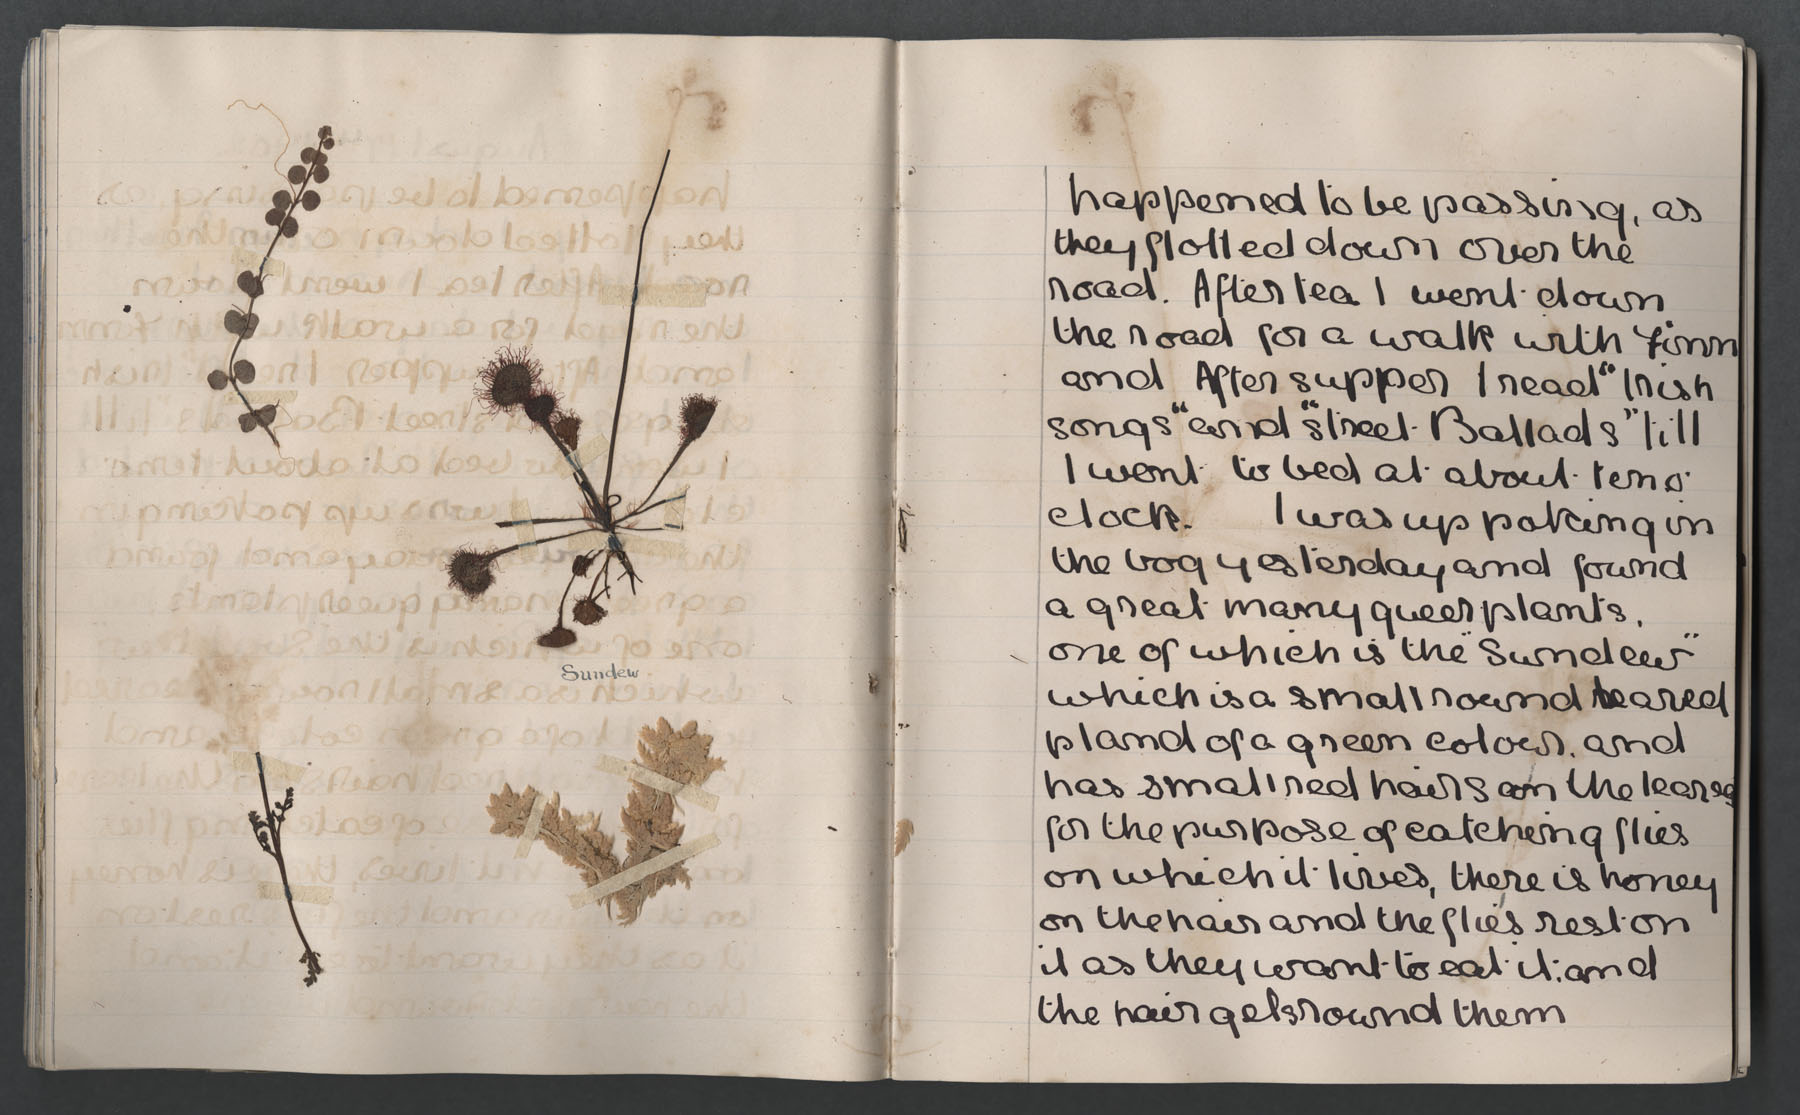 Sundew
happened to be passing, as
they flotted down over the
road. After tea I went down
the road for a walk with Finn
and After supper I read "Irish
songs" and "street Ballads" till
I went to bed at about ten o'
clock. I was up poking in
the bog yesterday and found
a great many queer plants,
one of which is the "Sundew"
which is a small round leaved
pland of a green colour, and
has small red hairs on the leaves
for the purpose of catching flies
on which it lives, there is honey
on the hair and the flies rest on
it as they want to eat it; and
the hair gets round them